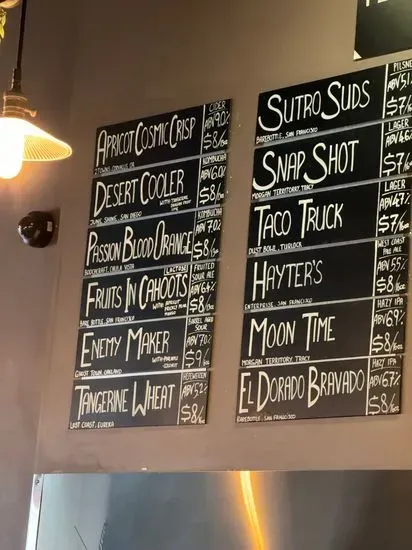 APRICOT COSMIC CRISP
CIDER
ABV 9.0%
$8/16oz
DESERT COOLER
KOMBUCHA
ABV 6.0%
$8/16oz
JUNE SHINE, SAN DIEGO
PASSION BLOOD ORANGE
KOMBUCHA
ABV 7.0%
$8/16oz
BOOCHCRAFT, CHULA VISTA
FRUITS IN CAHOOTS
LACTOSE
FRUITED SOUR ALE
ABV 6.4%
$8/13oz
BARE BOTTLE, SAN FRANCISCO
ENEMY MAKER
BARREL AGED SOUR
ABV 7.0%
$9/13oz
GHOST TOWN, OAKLAND
TANGERINE WHEAT
HEFEWEIZEN
ABV 5.2%
$8/16oz
LOST COAST, EUREKA
SUTRO SUDS
PILSNE
ABV 5.1
$7/
BAREBOTTLE, SAN FRANCISCO
SNAP SHOT
LAGER
ABV 4.6
$7/
MORGAN TERRITORY, TRACY
TACO TRUCK
LAGER
ABV 4.7%
$7/16oz
DUST BOWL, TURLOCK
HAYTER'S
WEST COAST PALE ALE
ABV 5.5%
$8/16oz
ENTERPRISE, SAN FRANCISCO
MOON TIME
HAZY IPA
ABV 6.9%
$8/16oz
MORGAN TERRITORY TRACY
EL DORADO BRAVADO
HAZY IPA
ABV 6.7%
$8/16oz
BAREBOTTLE, SAN FRANCISCO